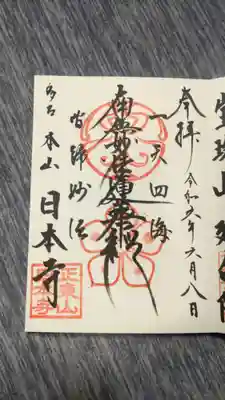 奉拝
令和年六月八日
一天四海
南無妙法蓮華経
皆歸妙法
多古 本山 日本寺
正東山
日本寺